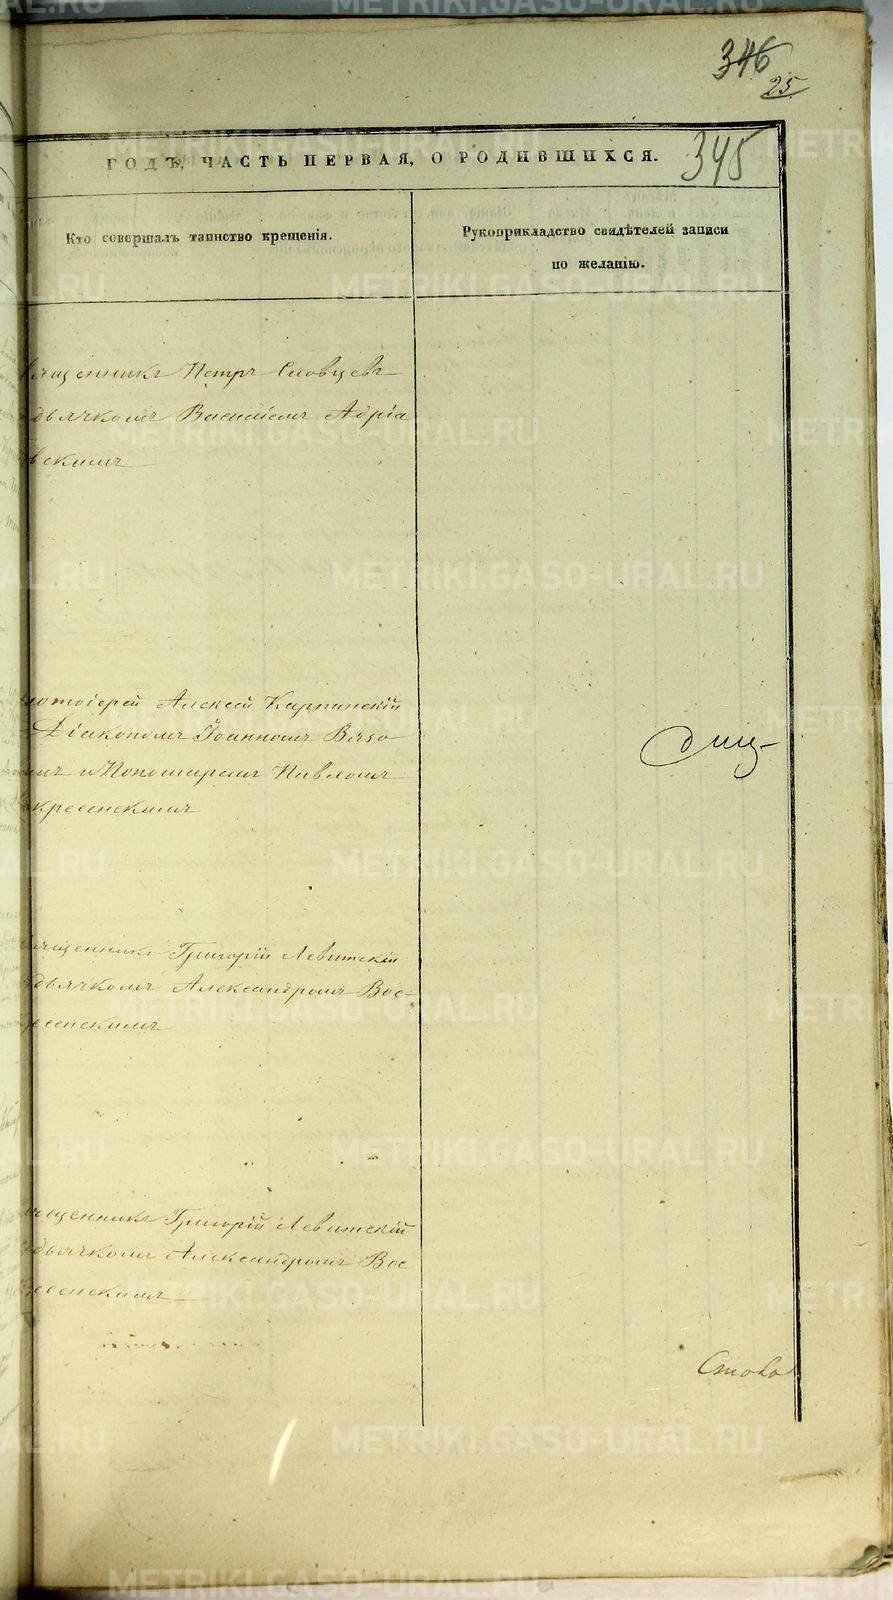 346
25
345
ГОДЪ, ЧАСТЬ ПЕРВАЯ, О РОДИВШИХСЯ.
Кто совершалъ таинство крещенія.
Рукоприкладство свидѣтелей записи
по желанію.
ященникъ Петръ Словцевъ
дьячкомъ Василіемъ Адріа
вскимъ
отоіерей Алексѣй Карпинскій
Діакономъ Іоанномъ Вязо
мъ и Пономаремъ Павломъ
кресенскимъ
ященникъ Григорій Левитскій
дьячкомъ Александромъ Вос-
ресенскимъ
ященникъ Григорій Левитскій
дьячкомъ Александромъ Вос
ресенскимъ
METRIKI.GASO-URAL.RU